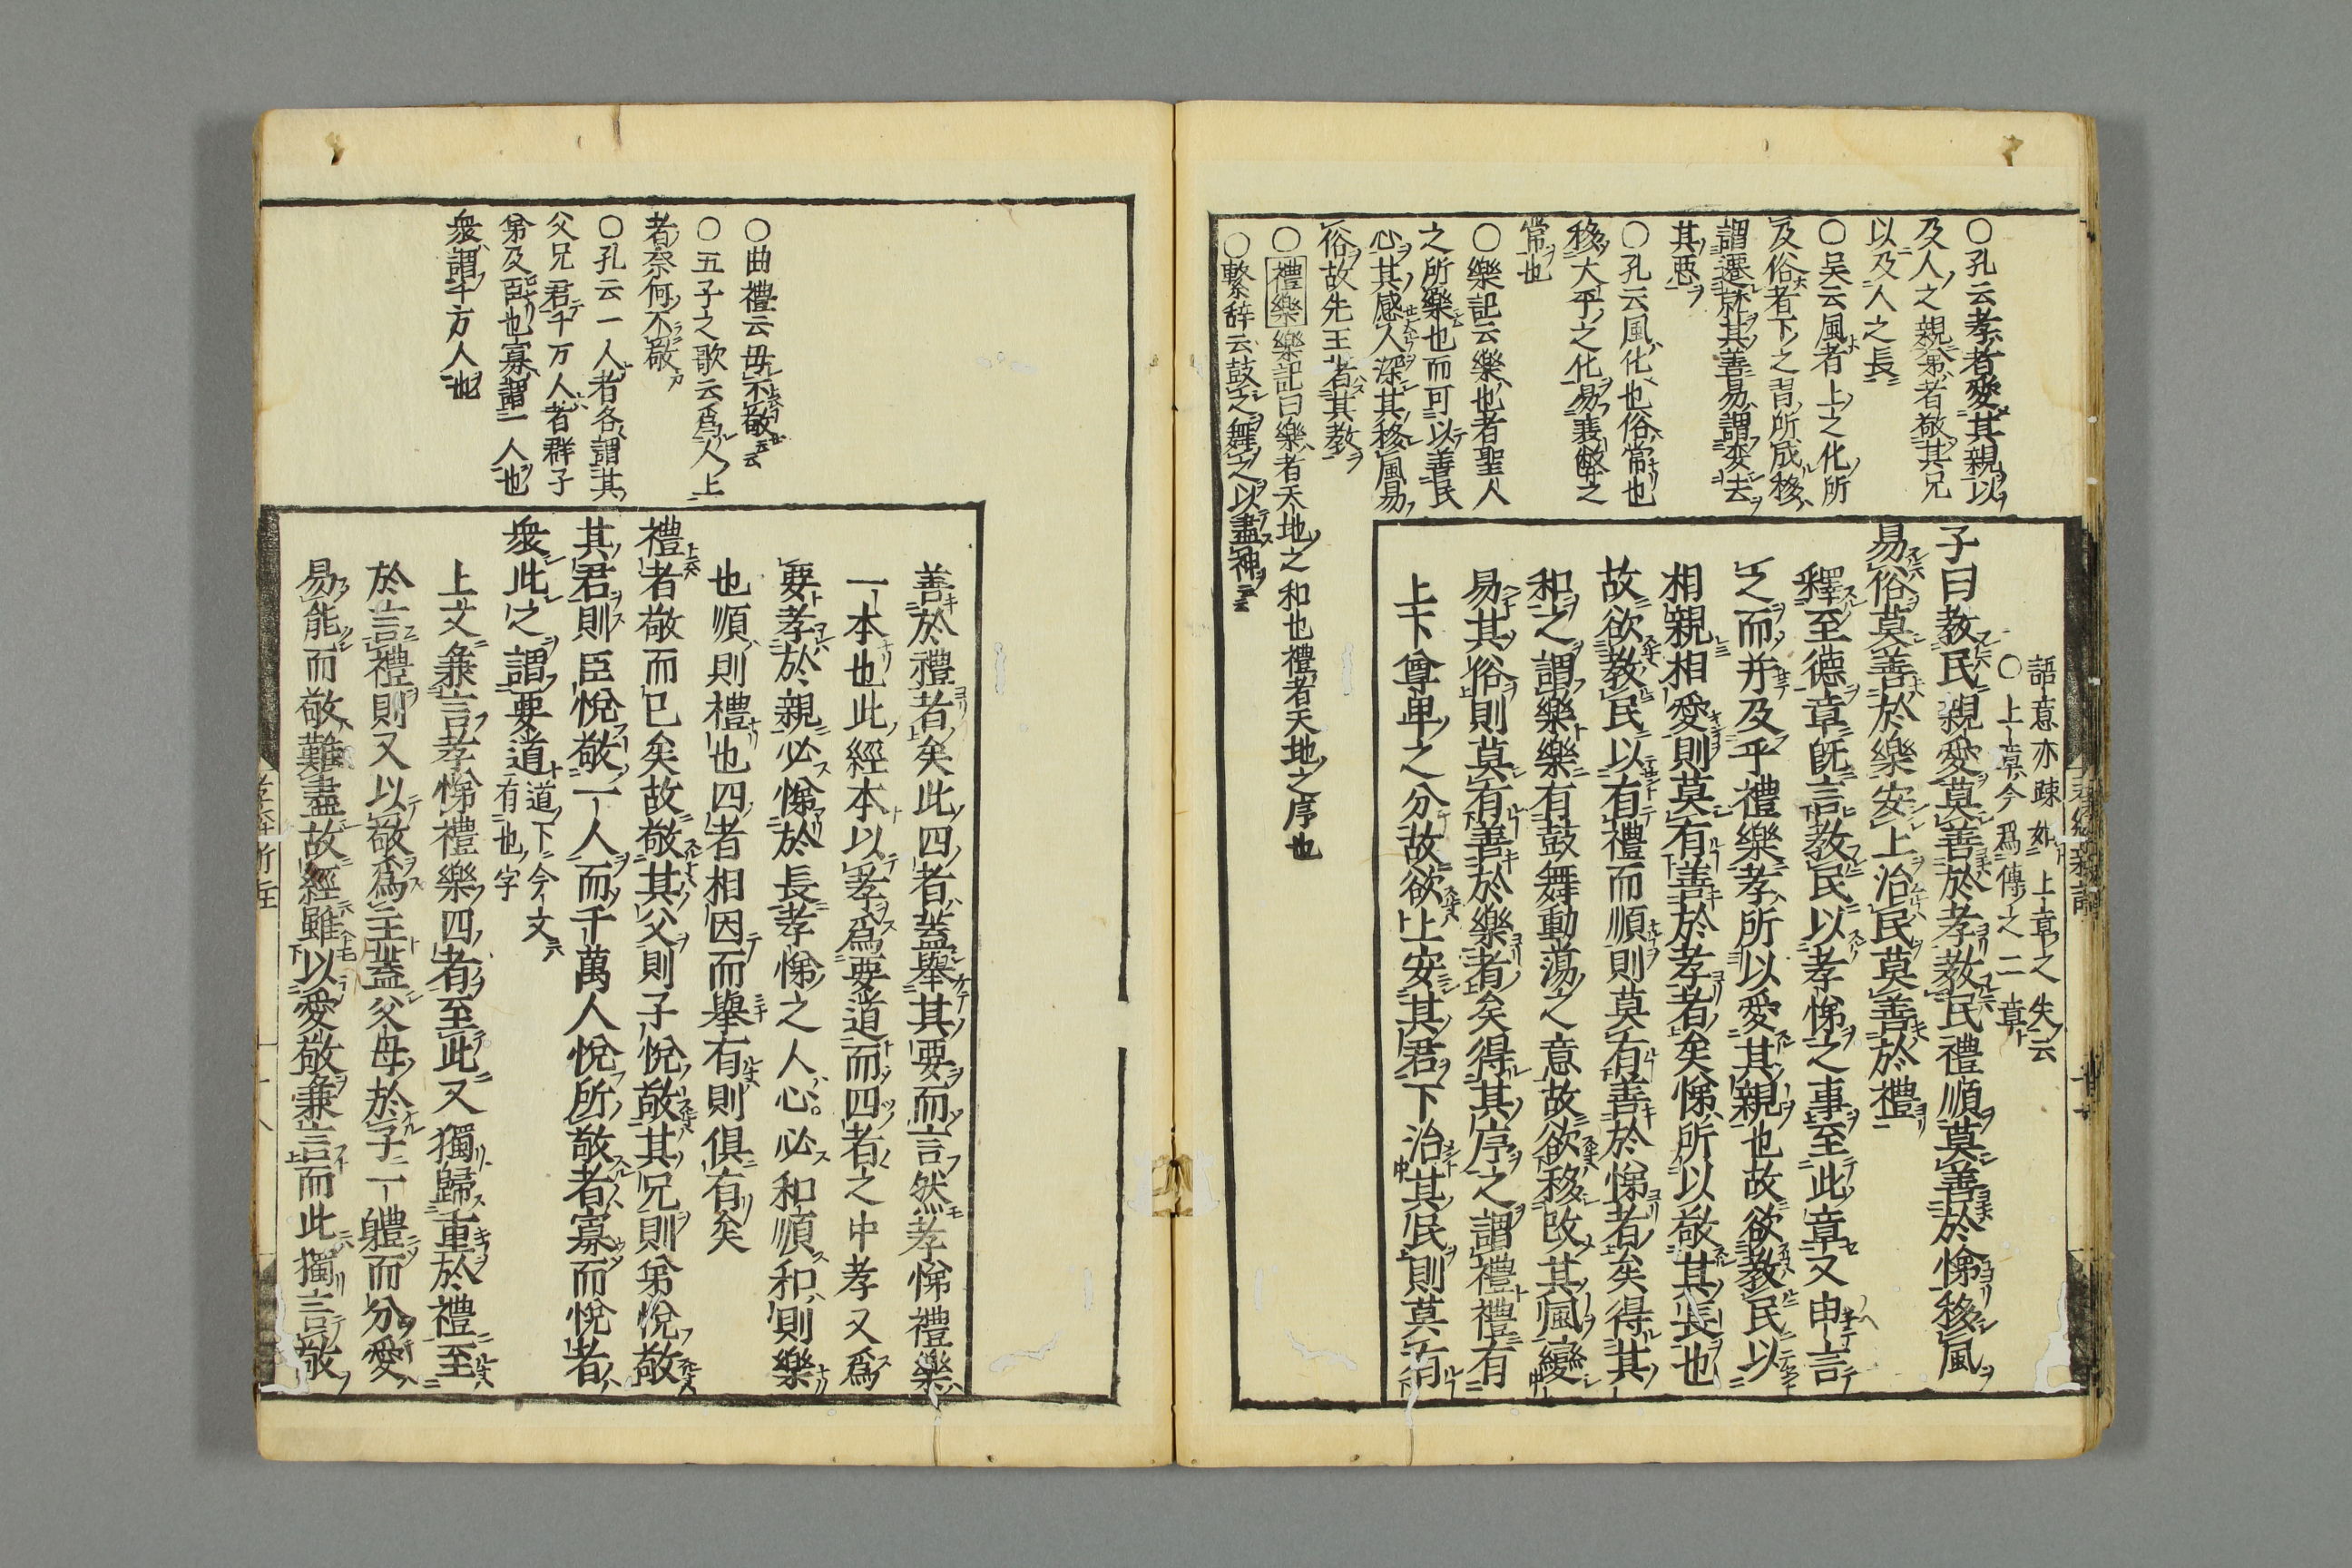 語意亦疎如上章之失云
○上章今為傳之二章
子曰教民親愛莫善於孝教民禮順莫善於悌移風
易俗莫善於樂安上治民莫善於禮
釋至德章既言教民以孝悌之事至此章又申言
之而并及乎禮樂孝所以愛其親也故欲教民以
相親相愛則莫有善於孝者矣悌所以敬其長也
故欲教民以有禮而順則莫有善於悌者矣得其
和之謂樂樂有鼓舞動蕩之意故欲移改其風變
易其俗則莫有善於樂者矣得其序之謂禮禮有
上下尊卑之分故欲上安其君下治其民則莫有
○孔云孝者愛其親以
及人之親弟者敬其兄
以及人之長
○吴云風者上之化所
及俗者下之習所成移
謂遷就其善易謂変去
其悪
○孔云風化也俗常也
移大平之化易衰弊之
常也
○樂記云樂也者聖人
之所樂也而可以善民
心其感人深其移風易
俗故先王著其教
○禮樂樂記曰樂者天地之和也禮者天地之序也
○繫辞云鼓之舞之以盡神云云
善於禮者矣此四者蓋舉其要而言然孝悌禮樂
一本也此經本以孝爲要道而四者之中孝又爲
要孝於親必悌於長孝悌之人心必和順和則樂
也順則禮也四者相因而舉有則俱有矣
禮者敬而已矣故敬其父則子悅敬其兄則弟悅敬
其君則臣悅敬一人而千萬人悅所敬者寡而悅者
衆此之謂要道道下今文有也字
上文兼言孝悌禮樂四者至此又獨歸重於禮至
於言禮則又以敬爲主蓋父母於子一體而分愛
易能而敬難盡故經雖以愛敬兼言而此獨言敬
○曲禮云毋不敬云云
○五子之歌云爲人上
者奈何不敬
○孔云一人者各謂其
父兄君千万人者群子
弟及臣也寡謂一人也
衆謂千万人也